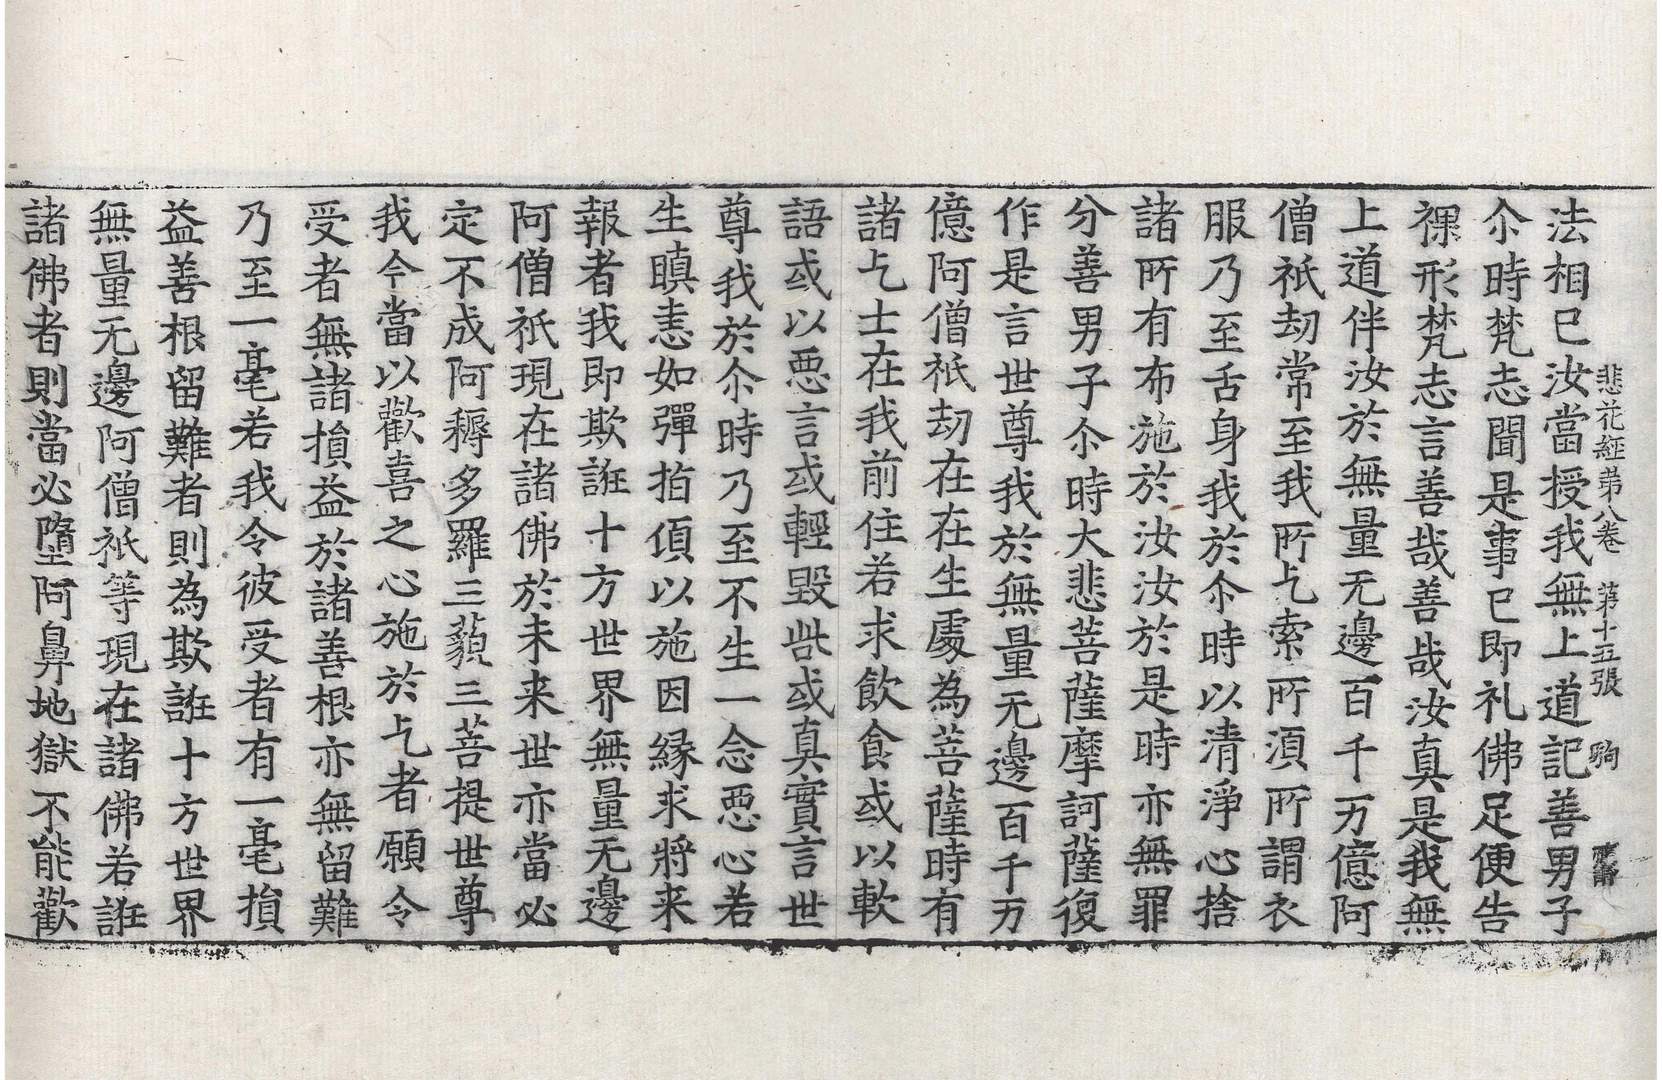 悲花經第八卷 第十五張 駒
法相已汝當授我無上道記善男子
尒時梵志聞是事已即礼佛足便告
裸形梵志言善哉善哉汝真是我無
上道伴汝於無量无邊百千万億阿
僧祇劫常至我所乞索所湏所謂衣
服乃至舌身我於尒時以清淨心捨
諸所有布施於汝汝於是時亦無罪
分善男子尒時大悲菩薩摩訶薩復
作是言世尊我於無量无邊百千万
億阿僧祇劫在在生處為菩薩時有
諸乞士在我前住若求飲食或以軟
語或以惡言或輕毀呰或真實言世
尊我於尒時乃至不生一念惡心若
生瞋恚如彈指頃以施因緣求將来
報者我即欺誑十方世界無量无邊
阿僧祇現在諸佛於未来世亦當必
定不成阿耨多羅三藐三菩提世尊
我今當以歡喜之心施於乞者願令
受者無諸損益於諸善根亦無留難
乃至一毫若我令彼受者有一毫損
益善根留難者則為欺誑十方世界
無量无邊阿僧祇等現在諸佛若誑
諸佛者則當必墮阿鼻地獄不能歡